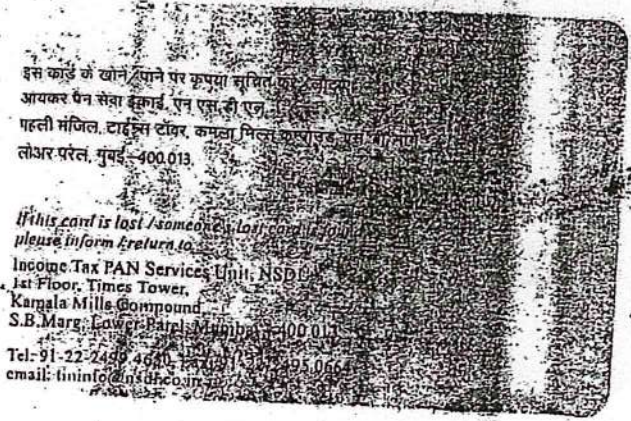 इस कार्ड के खोने/पाने पर कृपया सूचित करें/लौटाएं
आयकर पैन सेवा इकाई, एन एस डी एल
पहली मंजिल, टाईम्स टॉवर, कमला मिल्स कम्पाउंड,
लोअर परेल, मुंबई-400 013.
If this card is lost / someone's lost card is found,
please inform / return to
Income Tax PAN Services Unit, NSDL
1st Floor, Times Tower,
Kamala Mills Compound
S.B.Marg, Lower Parel, Mumbai - 400 013
Tel: 91-22-2499 4640, 2495 0664
email: tininfo@nsdl.co.in